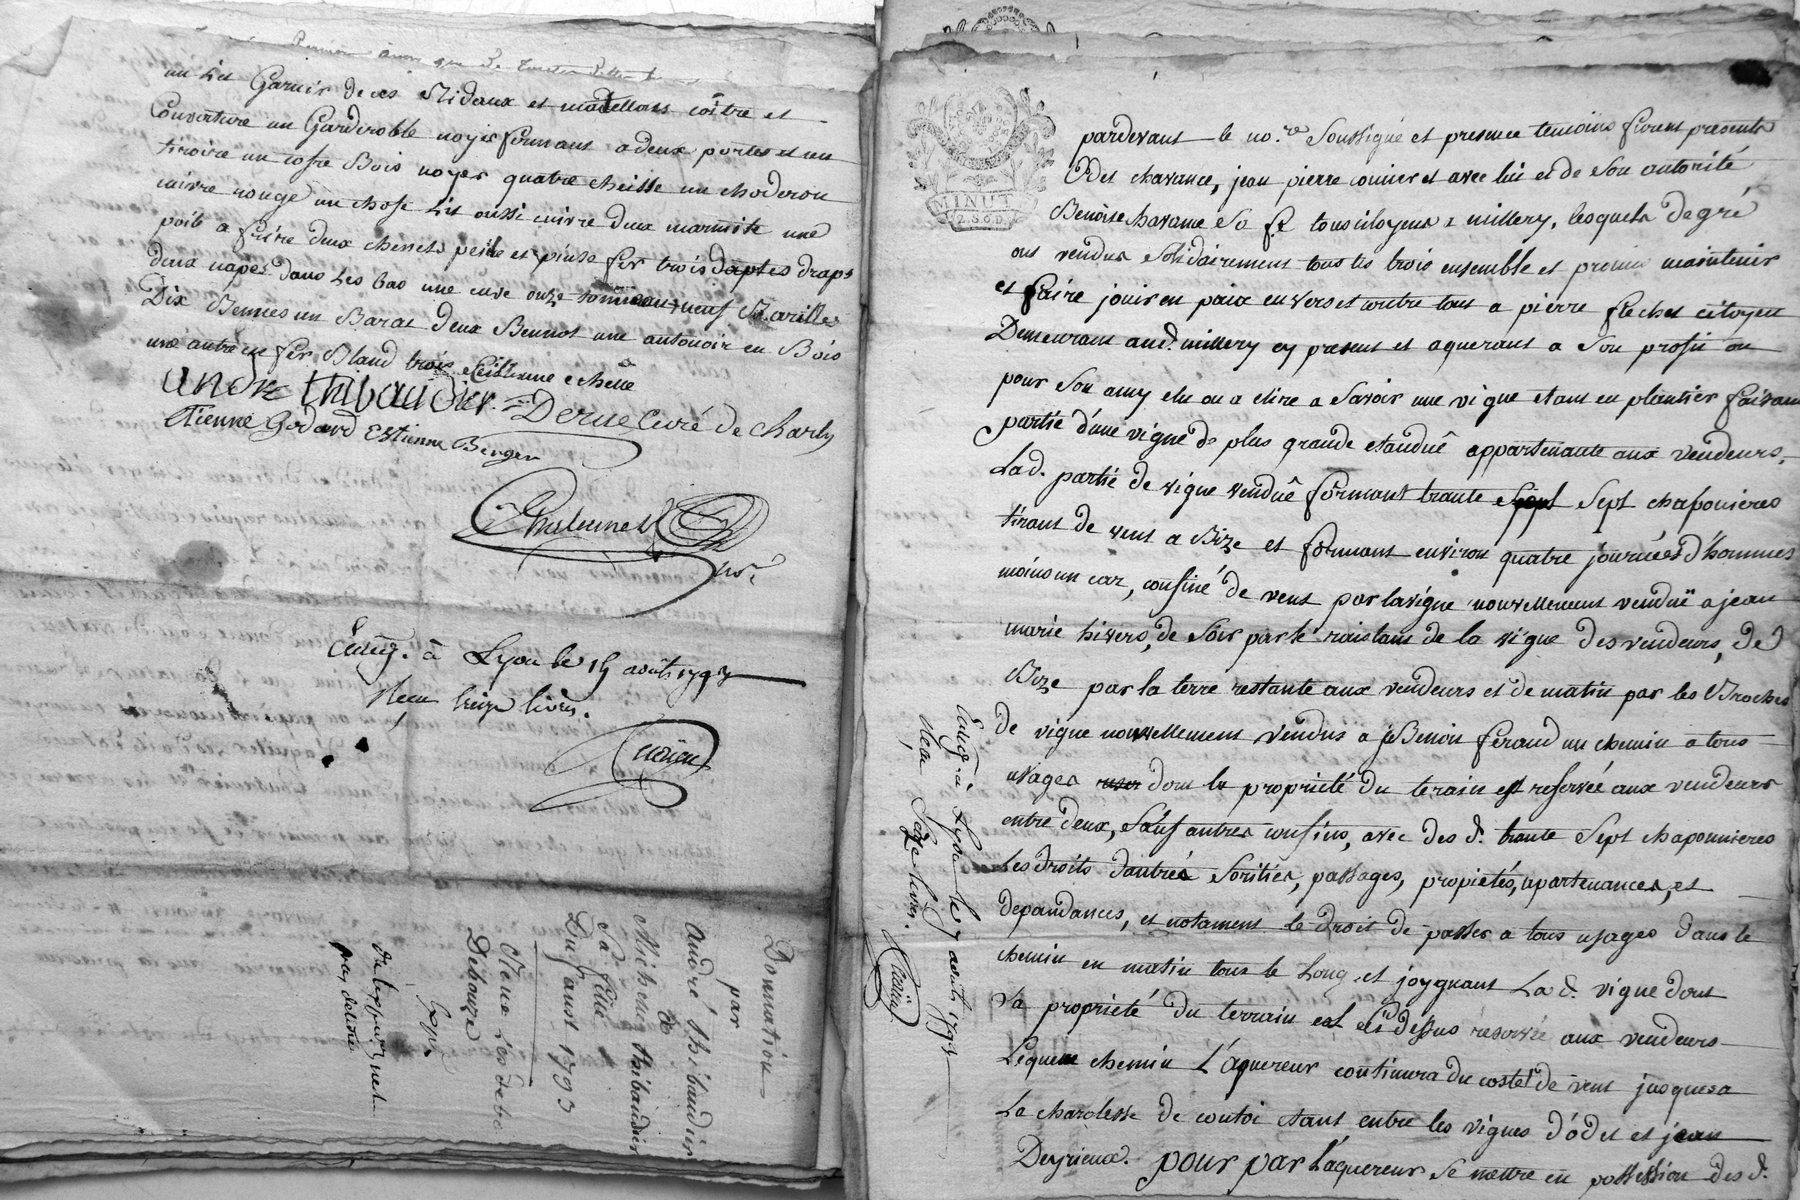 un Lit Garnis de ces Ridaux et matellans coitre et
Couverture un Garderoble noyer formant a deux portes et un
tiroire un cofre Bois noyer quatre cheisse un choderon
cuivre rouge un chose Lit oussi cuivre deux marmite une
poile a frire deux chenets pelle et pinse fer trois draps
deux napes dans Les bas une cuve onze tonneau neuf Barille
Dix Bennes un Barat deux Bennot une antonoir en Bois
une autre en fer Bland trois echelle
andre thibaudier Derue Curé de Charly
Etienne Godard Estienne Berger
Enreg. à Lyon le 15 août 1793
Reçu seize livres.
Donnation
par
André thibaudier
a
thibaudier
Sa fille
Du aoust 1793
pardevant le no.re Soussigné et presence temoins furent presents
Odet chavance, jean pierre et avec lui et de Son autorité
Benoite chavance Sa fe tous citoyens a millery, lesquels de gré
ont vendus Solidairement tous les trois ensemble et promis maintenir
et faire jouir en paix envers et contre tous a pierre flechet citoyen
Demeurant aud. millery cy present et aquerant a Son profit ou
pour Son amy elu ou a elire a Savoir une vigne etant en plantier faisant
partie d'une vigne de plus grande etanduë appartenante aux vendeurs,
Lad. partie de vigne venduë formant trante Sept chaponieres
tirant de vent a Bize et formant environ quatre journées d'hommes
moins un car, confiné de vent par la vigne nouvellement venduë a jean
marie hivers, de Soir par le restant de la vigne des vendeurs, de
Bize par la terre restante aux vendeurs et de matin par les Broches
de vigne nouvellement vendus a Benoit feraud un chemin a tous
usages dont la propriété du terain est reservée aux vendeurs
entre deux, Sauf autres confins, avec des d. trante Sept chaponnieres
Les droits d'antrés Sorties, passages, propietés, apartenances, et
depandances, et notament le droit de passer a tous usages dans le
chemin en matin tous le Long et joygnant La d. vigne dont
la propriété du terrain est ci dessus reservée aux vendeurs
Lequel chemin L'aquereur continura du costé de vent jusques a
La charolesse de contoi etant entre les vignes d'odet et jean
Deyrieux. pour par L'aquereur Se mettre en possession des d.
Enreg. à Lyon le 7 août 1793
Reçu Seize livres.
MINUT
2.S.6.D